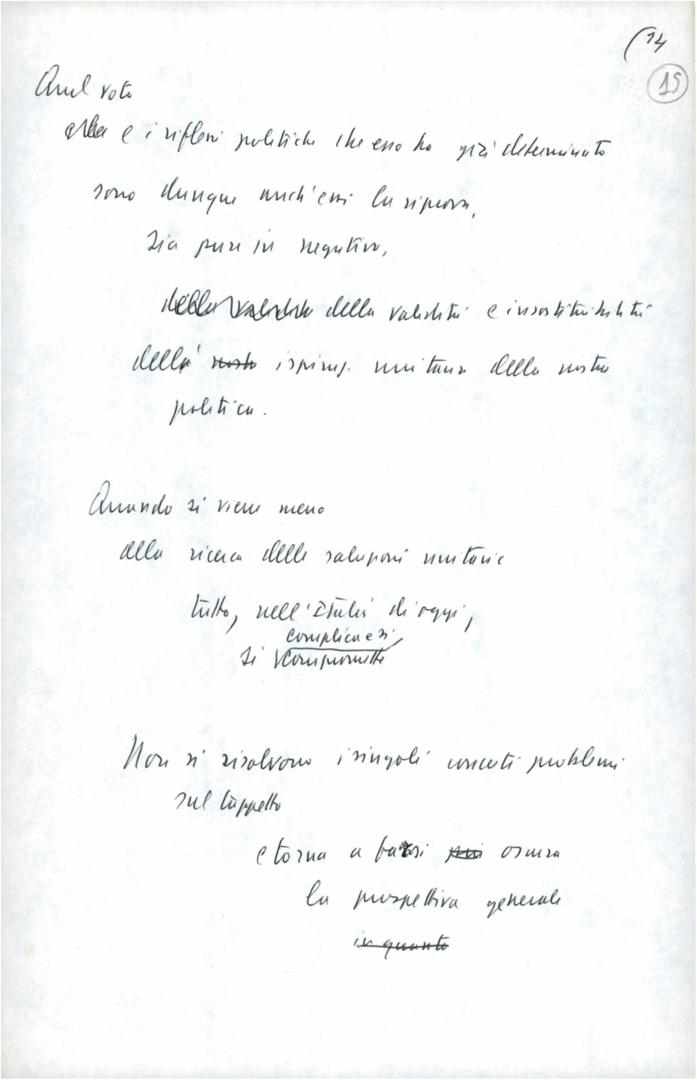 (14
15
Quel voto
e i riflessi politici che esso ha già determinato
sono dunque anch'essi la riprova,
sia pure in negativo,
della validità della validità e insostituibilità
della ispiraz. unitaria della nostra
politica.
Quando si viene meno
alla ricerca delle soluzioni unitarie
tutto, nell'Italia di oggi,
complica e si
si compromette
Non si risolvono i singoli concreti problemi
sul tappeto
e torna a farsi più oscura
la prospettiva generale
in quanto